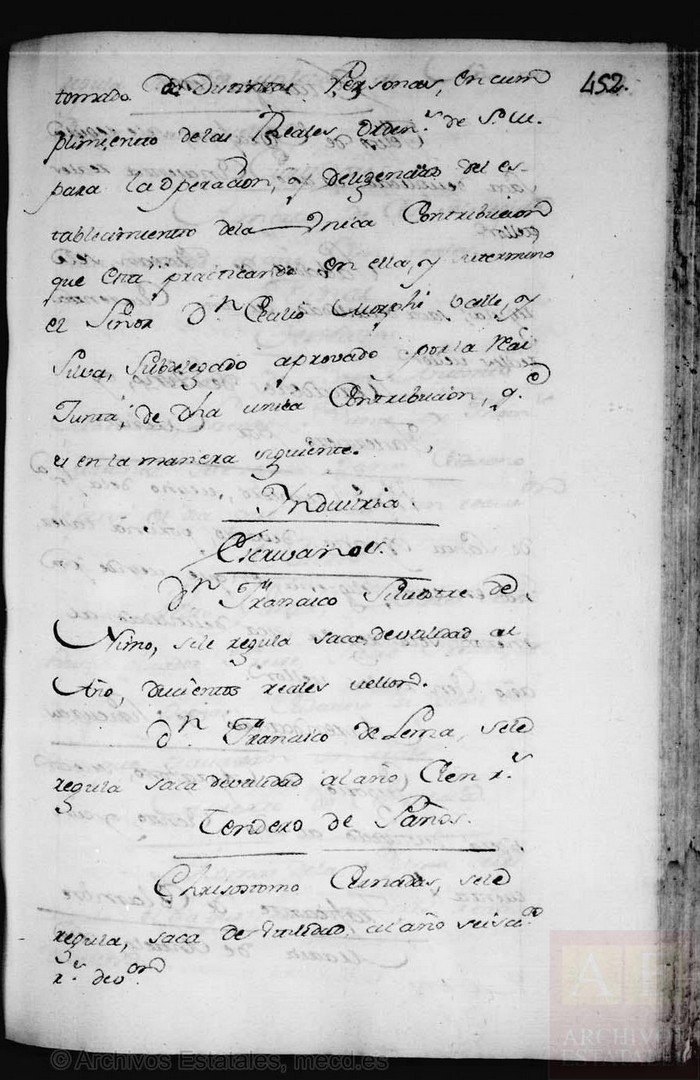 452.
tomado de Distintas Personas, en cum
plimiento delas Reales ordens. de S. M.
para la Operacion, y Deligencias del es-
tablecimiento dela Unica Contribucion
que está practicando en ella, y su termino
el Señor Dn. Morphi Valle, y
Silva, Subdelegado aprovado por la Real
Junta, de dha unica Contribucion, q.e
es en la manera siguiente.
Industria
Escrivanos.
Dn. Franzisco Silvestre de
Nimo, se le regula saca de utilidad al
Año, ducientos reales vellon.
Dn. Franzisco de Lema, se le
regula saca de utilidad al año Cien rs.
Tendero de Paños.
Chrisostomo, se le
regula, saca de utilidad, al año seisc.os
rs. de von.
© Archivos Estatales, mecd.es
AE
ARCHIVOS
ESTATALES